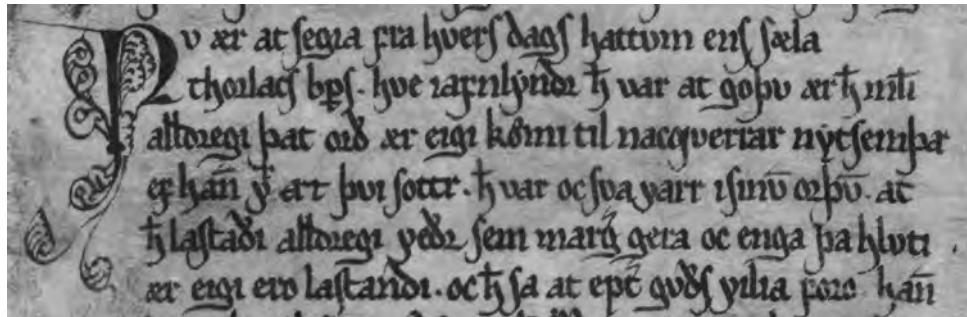 Nv ær at ſegia fra hverſ dagſ hattvm enſ ſæla
thorlacſ bps. hve iafnlẏndr h̄ var at goþv ær h̄ mlti
alldregi þat orð ær eigi kømi til nacqverrar nẏtſemþar
ef han̄ var at þvi ſottr. h̄ var oc ſva varr i ſinv̄ orþv̄. at
h̄ laſtaði alldregi veðr ſem margir gera oc enga þa hlvti
ær eigi ero laſtandi. oc h̄ ſa at ept gvðſ vilia foro han̄